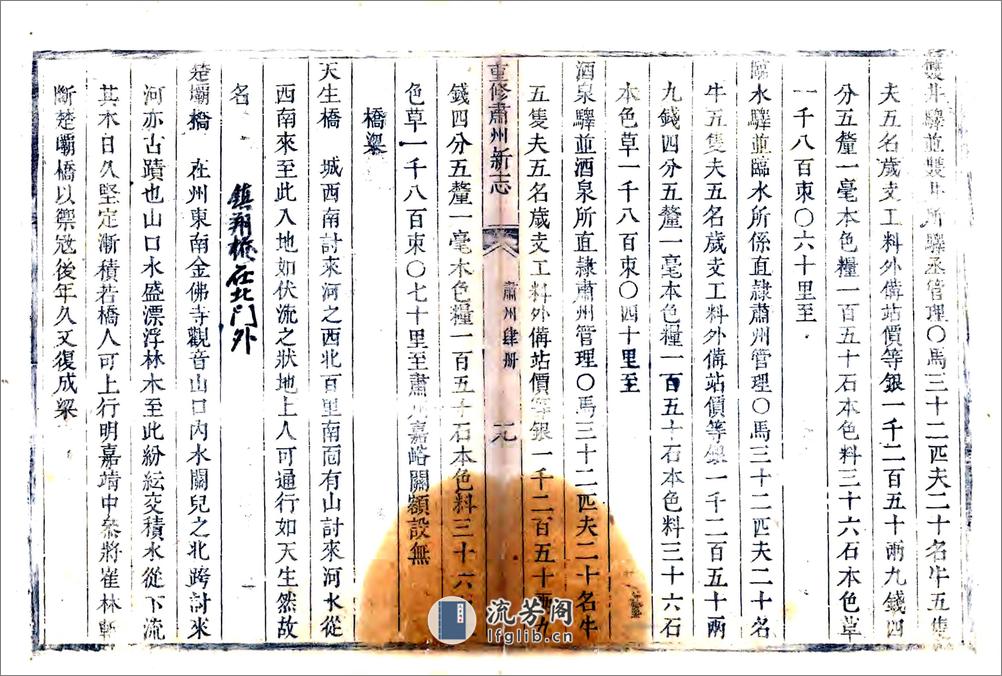 雙井驛並雙井所驛丞管理〇馬三十二匹夫二十名牛五隻
夫五名歲支工料外備站價等銀一千二百五十兩九錢四
分五釐一毫本色糧一百五十石本色料三十六石本色草
一千八百束〇六十里至
臨水驛並臨水所係直隷肅州管理〇馬三十二匹夫二十名
牛五隻夫五名歲支工料外備站價等銀一千二百五十兩
九錢四分五釐一毫本色糧一百五十石本色料三十六石
本色草一千八百束〇四十里至
酒泉驛並酒泉所直隷肅州管理〇馬三十二匹夫二十名牛
五隻夫五名歲支工料外備站價等銀一千二百五十兩九
重修肅州新志
肅州肆册
十九
錢四分五釐一毫本色糧一百五十石本色料三十六
色草一千八百束〇七十里至肅州嘉峪關額設無
橋梁
天生橋 城西南討來河之西北百里南面有山討來河水從
西南來至此入地如伏流之狀地上人可通行如天生然故
名
鎮朔橋在北門外
楚壩橋 在州東南金佛寺觀音山口內水關兒之北跨討來
河亦古蹟也山口水盛漂浮林木至此紛紜交積水從下流
其木日久堅定漸積若橋人可上行明嘉靖中叅將崔林斬
斷楚壩橋以禦寇後年久又復成梁
流芳阁
lfglib.cn